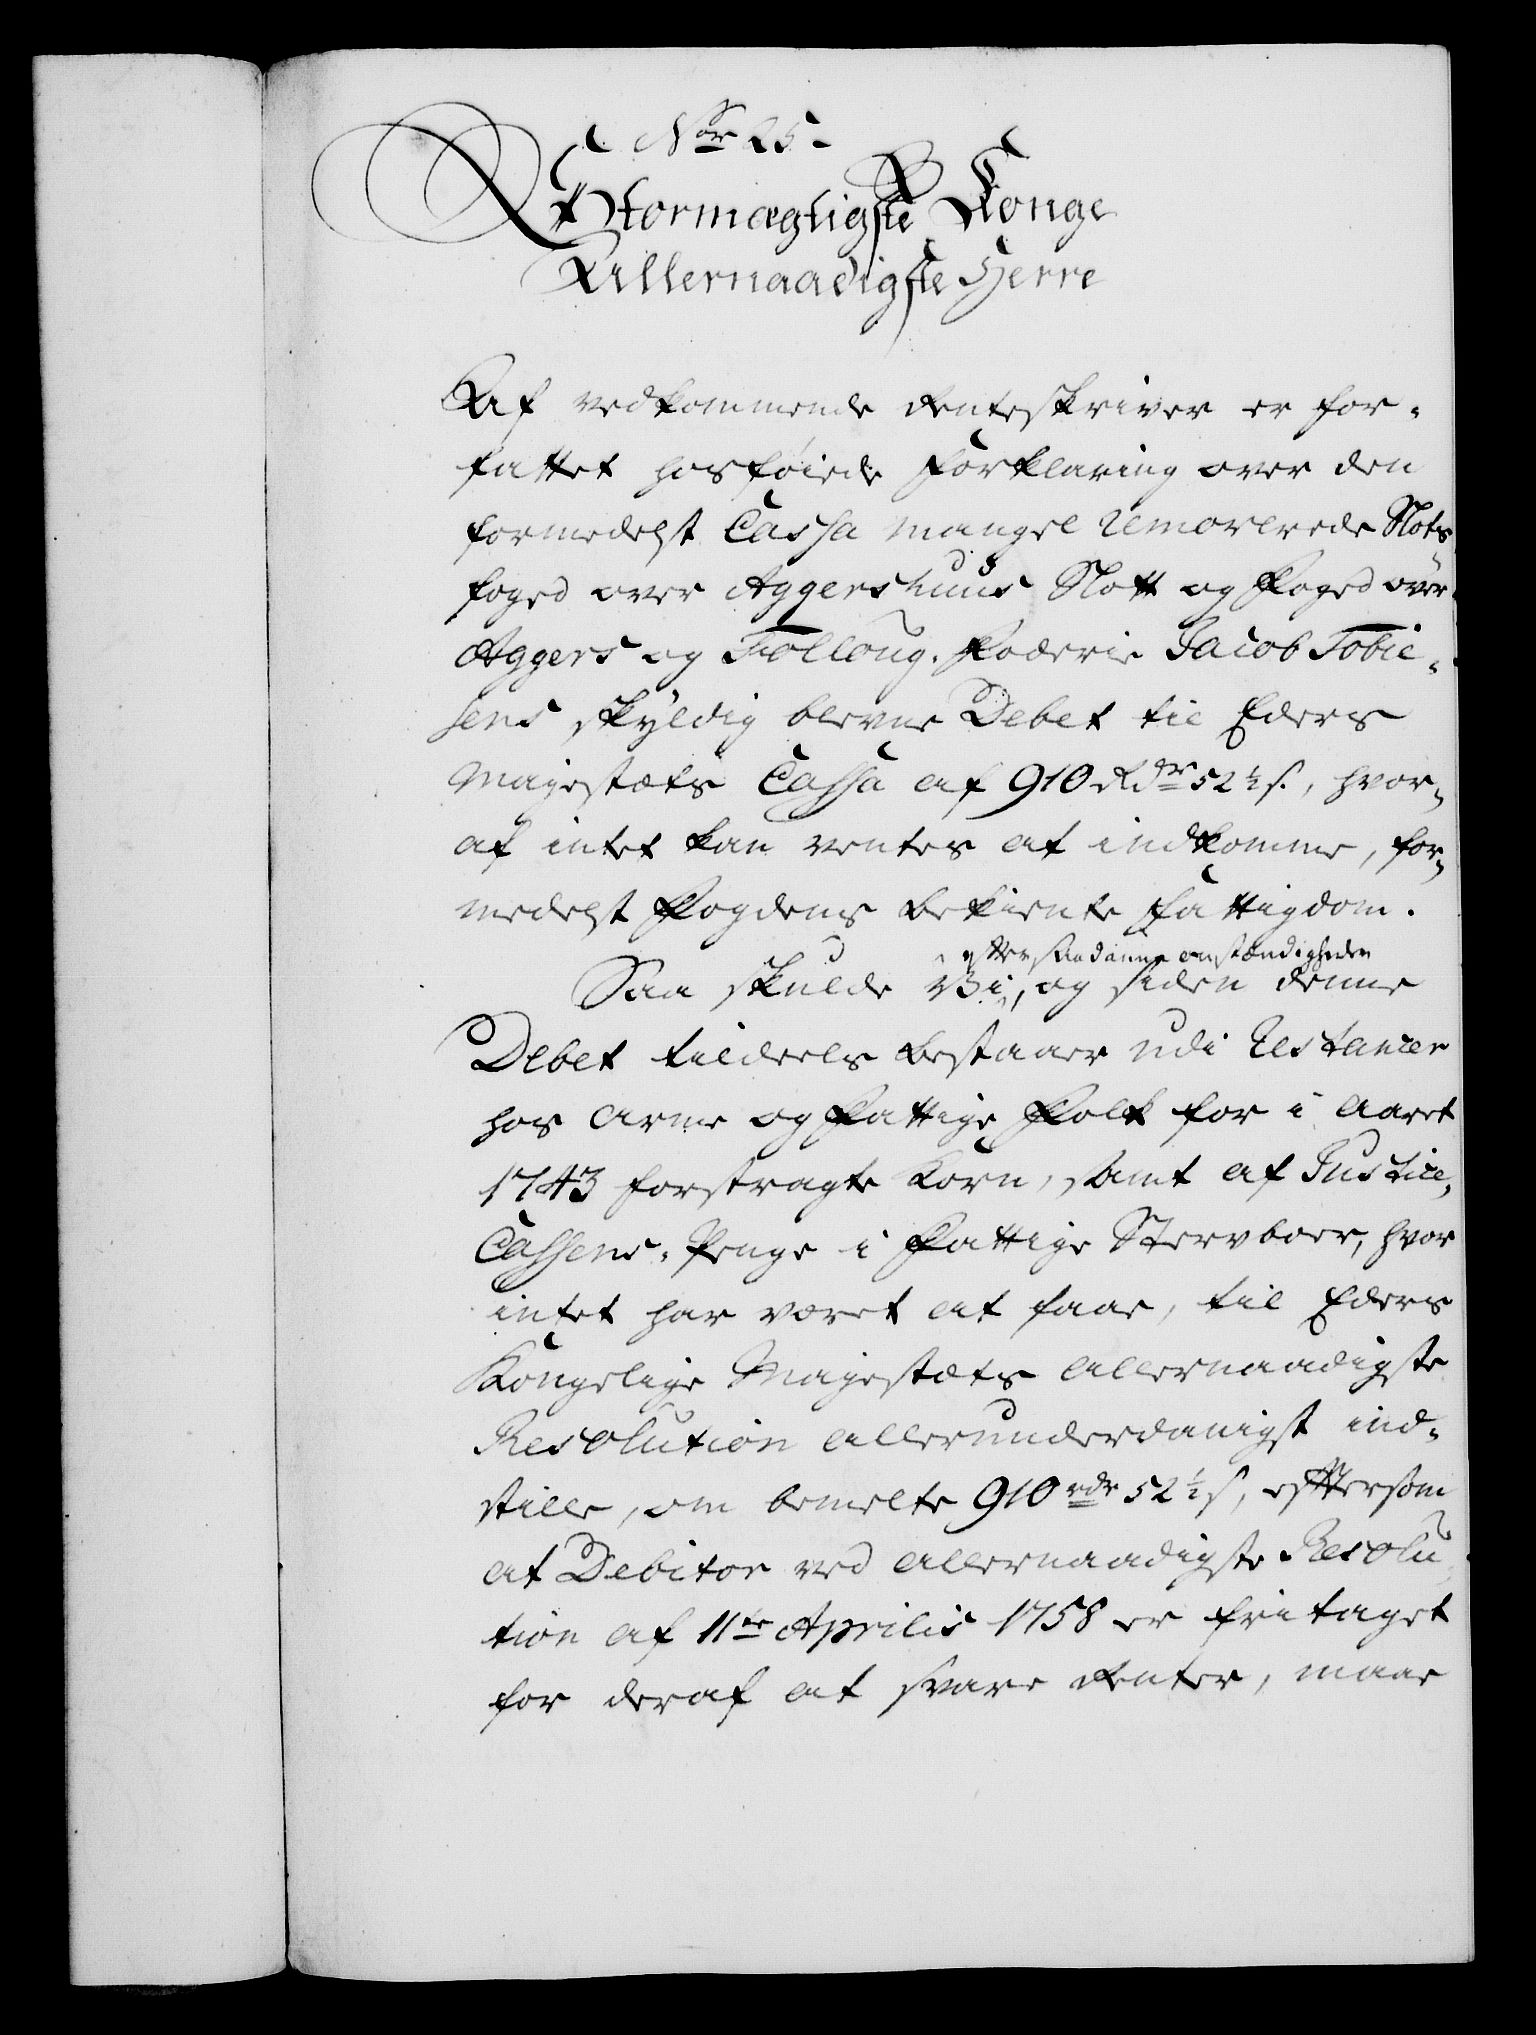 Nor 25
Stormægtigste Konge
Allernaadigste Herre
Af vedkommende Renteskriver er for-
fattet hosføiede Forklaring over den
formedelst Cassa Mangel removerede Slots-
foged over Aggershuus Slott og Foged over
Aggers og Folloug-Foderie Jacob Tobie-
sens skyldig blevne Debet til Eders
Majestæts Cassa af 910 Rdr 52 1/2 s., hvor-
af intet kan ventes at indkomme, for-
medelst Fogdens bekiente Fattigdom.
efter saadanne omstændigheder
Saa skulde Vi, og siden denne
Debet tildeels bestaaer udi Restancer
hos Arme og Fattige Folk for i Aaret
1743 forstragte Korn, samt af Justice-
Cassens-Penge i Fattige Stervboer, hvor
intet har været at faae, til Eders
Kongelige Majestæts allernaadigste
Resolution allerunderdanigst ind-
stille, om bemelte 910 rdr 52 1/2 s, eftersom
at Debitor ved allernaadigste Resolu-
tion af 11te Aprilis 1758 er fritaget
for deraf at svare Renter, maae